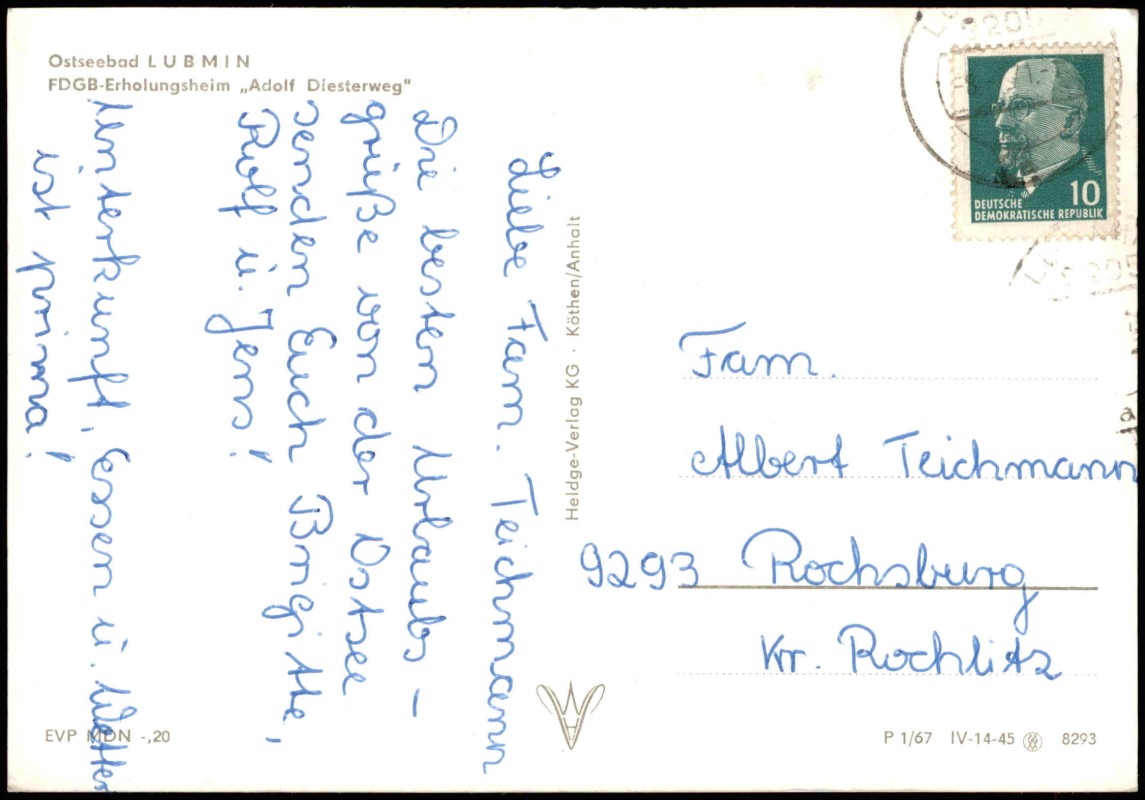 Ostseebad LUBMIN
FDGB-Erholungsheim „Adolf Diesterweg"
Liebe Fam. Teichmann
Die besten Urlaubs-
grüße von der Ostsee
senden Euch Brigitte,
Rolf u. Jens!
Unterkunft, Essen u. Wetter
ist prima!
Heldge-Verlag KG · Köthen/Anhalt
10
DEUTSCHE
DEMOKRATISCHE REPUBLIK
Fam.
Albert Teichmann
9293 Rochsburg
Kr. Rochlitz
EVP MDN -,20
P 1/67 IV-14-45 8293